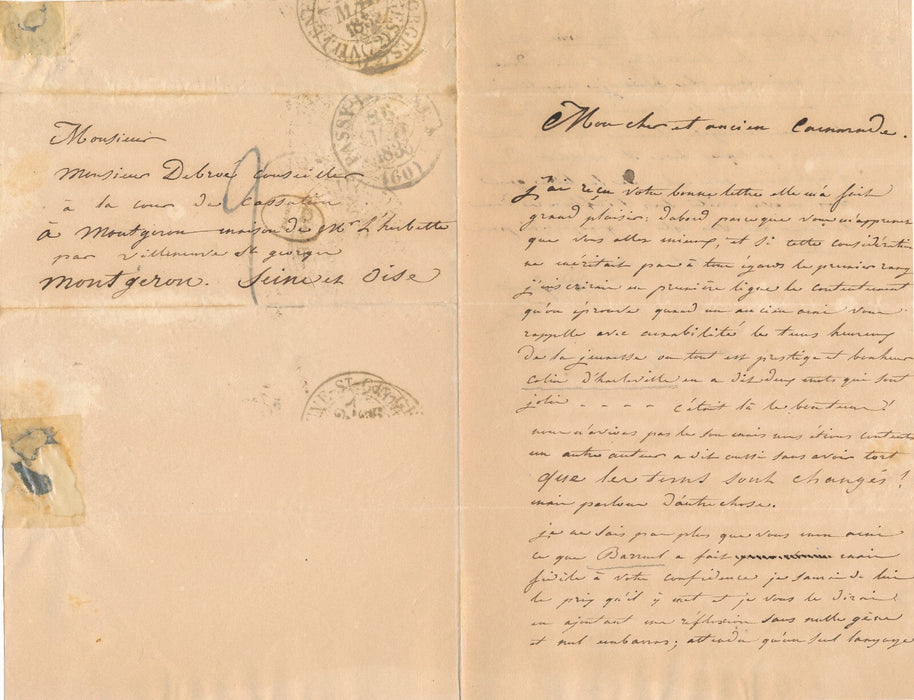 Monsieur
Monsieur Debroé Conseiller
à la cour de Cassation
à Montgeron maison de Mr L'herbette
par villeneuve St georges
Montgeron. Seine et Oise
PASSY-
(60)
Mon cher et ancien Camarade.
j'ai reçu votre bonne lettre elle m'a fait
grand plaisir: d'abord parceque vous m'apprenez
que vous allez mieux, et si cette considération
ne méritait pas à tous égards le premier rang
j'inscrirais en première ligne le contentement
qu'on éprouve quand un ancien ami vous
rappelle avec amabilité le tems heureux
de la jeunesse ou tout est prestige et bonheur
Colin d'harleville en a dit deux mots qui sont
jolis - - - - c'était là le bon tems!
nous n'avions pas le sou mais nous étions contents
un autre auteur a dit aussi sans avoir tort
que les tems sont changés!
mais parlons d'autre chose.
je ne sais pas plus que vous mon ami
ce que Barruel a fait mais
fidèle à votre confidence je saurai de lui
le prix qu'il y met et je vous le dirai
en ajoutant une réflexion sans nulle gêne
et nul embarras; attendu qu'un seul langage